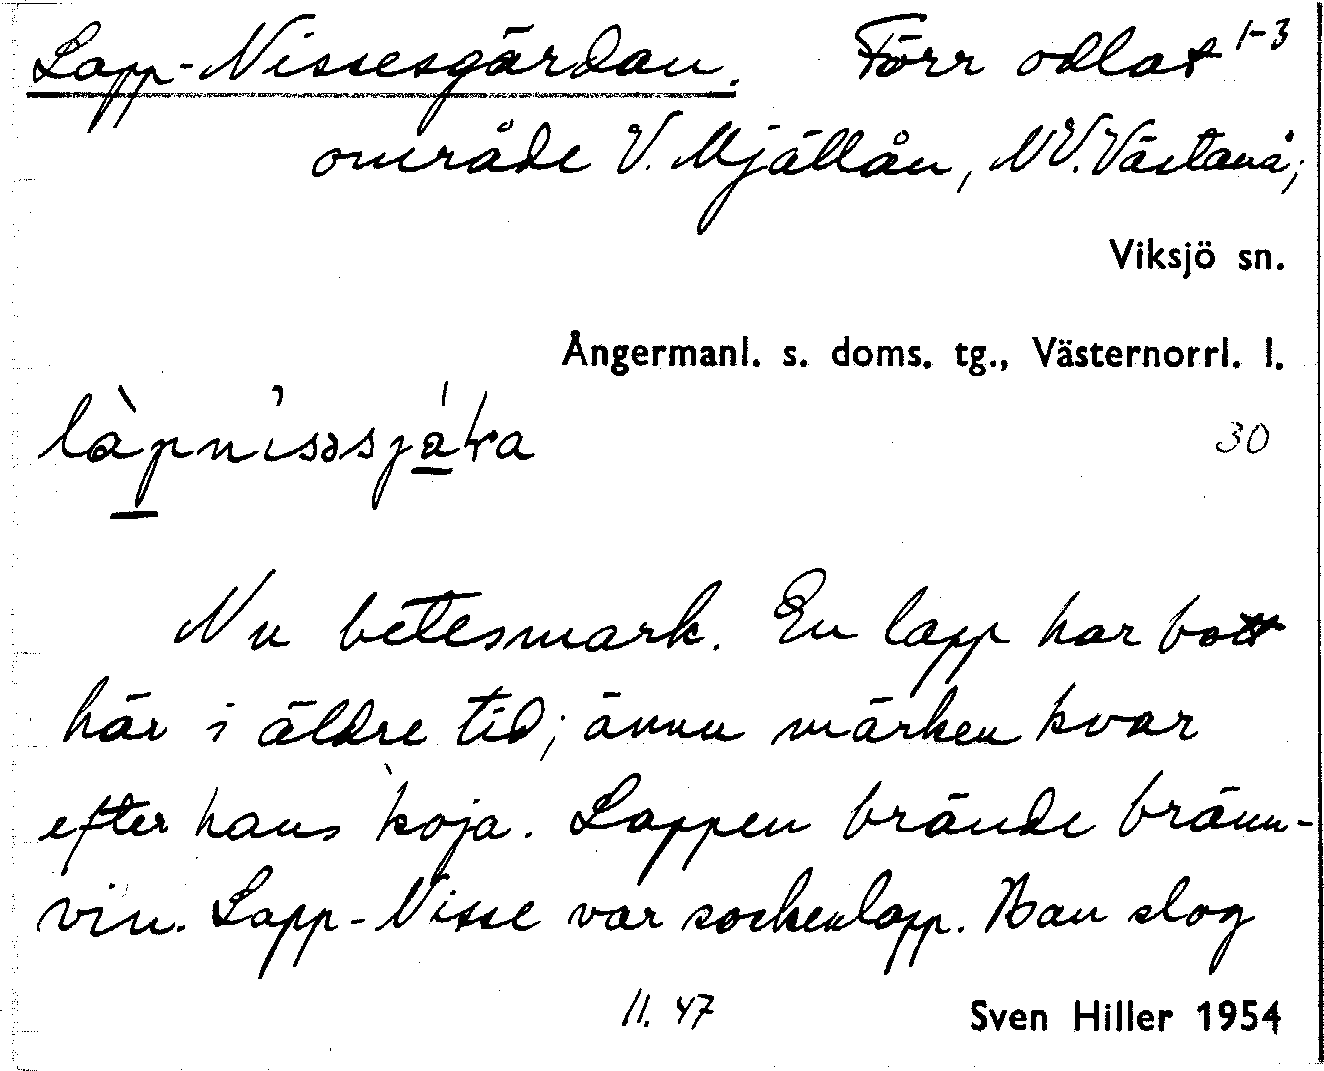 Lapp-Nissesgärdan. Förr odlat 1-3
område V. Mjällån, NV. Västanå;
Viksjö sn.
Ångermanl. s. doms. tg., Västernorrl. l.
30
Nu betesmark. En lapp har bott
här i äldre tid; ännu märken kvar
efter hans koja. Lappen brände bränn-
vin. Lapp-Nisse var sockenlapp. Han slog
11. 47 Sven Hiller 1954